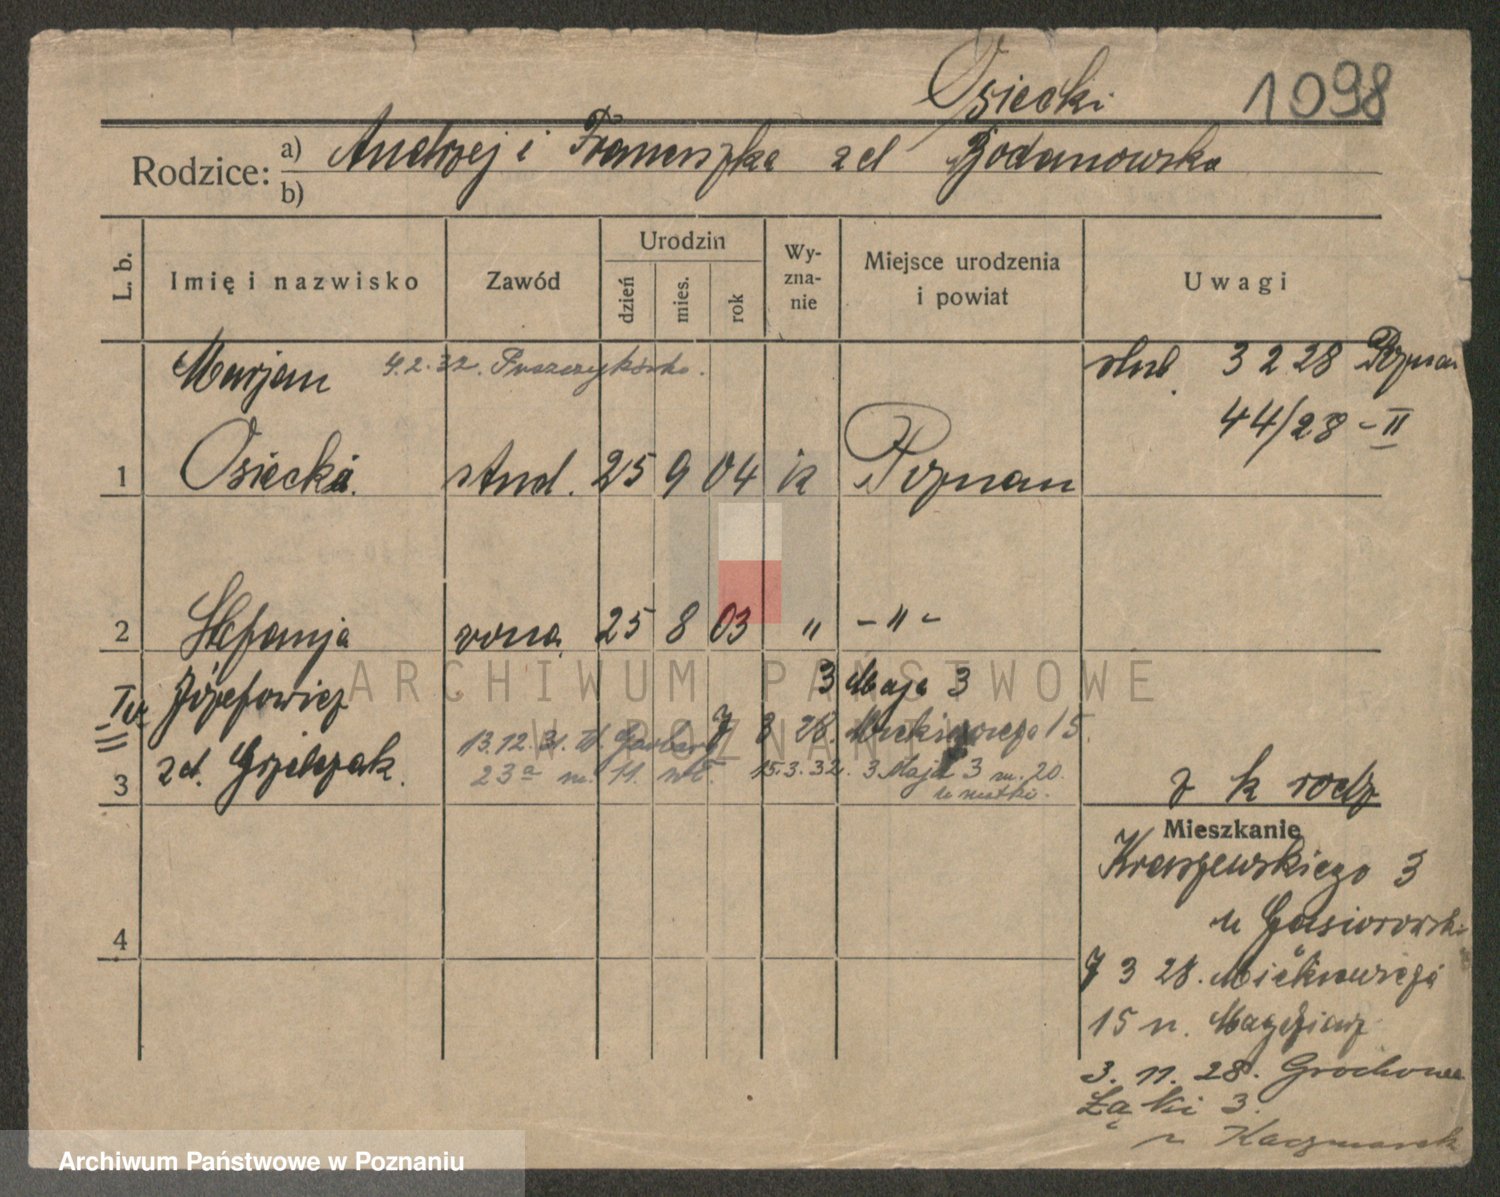 Osiecki 1098
Rodzice: a) Andrzej i Franciszka zd Bodanowska
b)
L. b. Imię i nazwisko Zawód Urodzin dzień mies. rok Wyznanie Miejsce urodzenia i powiat Uwagi
Marjan 4.2.32. Puszczykówko. ślub. 3 2 28 Poznań
44/28 - II
1 Osiecki. stud. 25 9 04 k Poznań
2 Stefanja żona. 25 8 03 " - " -
Józefowicz 3 Maja 3
7 3 28. Mickiewicza 15.
13.12.31. W. Garbary
zd. Grzelczak. 23a m. 11. wł. 15.3.32. 3 Maja 3 m. 20.
3 u matki.
z k rodz
Mieszkanie
Kraszewskiego 3
u Gąsiorowski
4 7 3 28. Mickiewicza
15 u.
3. 11. 28. Grochowe
Łąki 3.
u Kaczmarek
ARCHIWUM PAŃSTWOWE
W POZNANIU
Archiwum Państwowe w Poznaniu